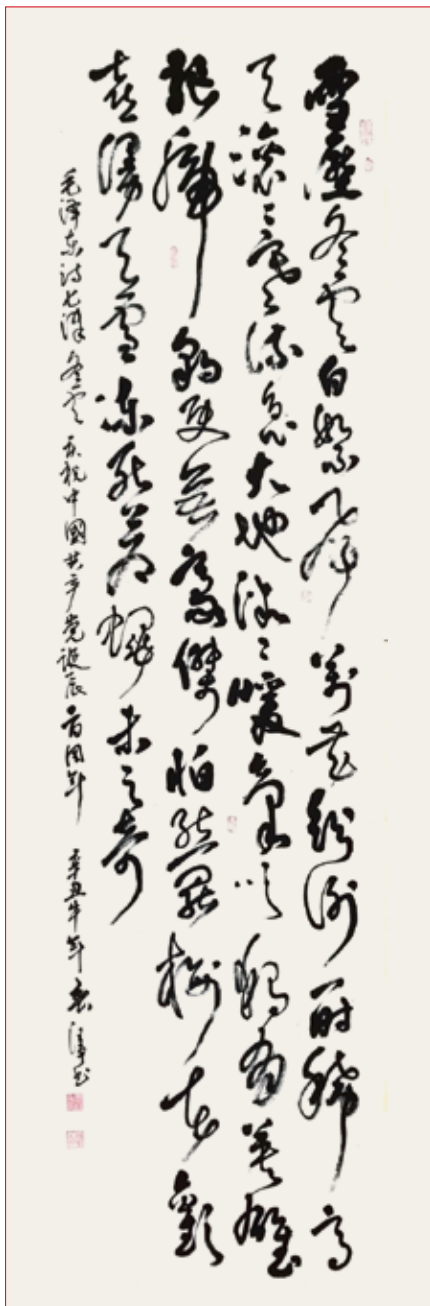 雪壓冬雲白絮飛萬花紛謝一時稀高
天滚滚寒流急大地微微暖氣吹獨有英雄
驅虎豹更無豪傑怕熊羆梅花歡
喜漫天雪凍死蒼蠅未足奇
毛泽东诗七律冬雲 庆祝中國共产党诞辰百周年 辛丑牛年